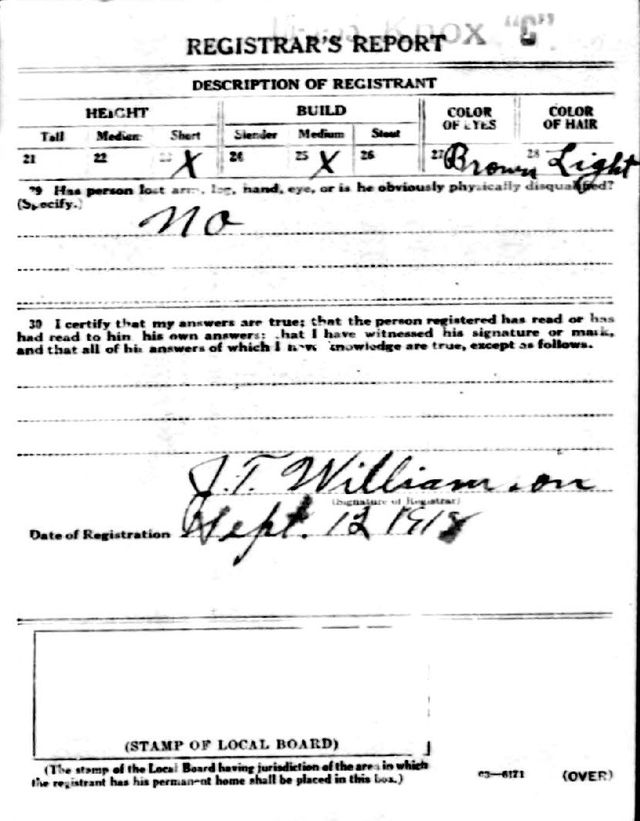 Knox "C"
REGISTRAR'S REPORT
DESCRIPTION OF REGISTRANT
HEIGHT BUILD COLOR OF EYES COLOR OF HAIR
Tall Medium Short Slender Medium Stout
21 22 23 X 24 25 X 26 27 Brown 28 Light
29 Has person lost arm, leg, hand, eye, or is he obviously physically disqualified?
(Specify.)
No
30 I certify that my answers are true; that the person registered has read or has
had read to him his own answers; that I have witnessed his signature or mark,
and that all of his answers of which I have knowledge are true, except as follows.
J.T. Williamson
(Signature of Registrar)
Date of Registration Sept. 12 1918
(STAMP OF LOCAL BOARD)
(The stamp of the Local Board having jurisdiction of the area in which
the registrant has his permanent home shall be placed in this box.)
03—6171 (OVER)